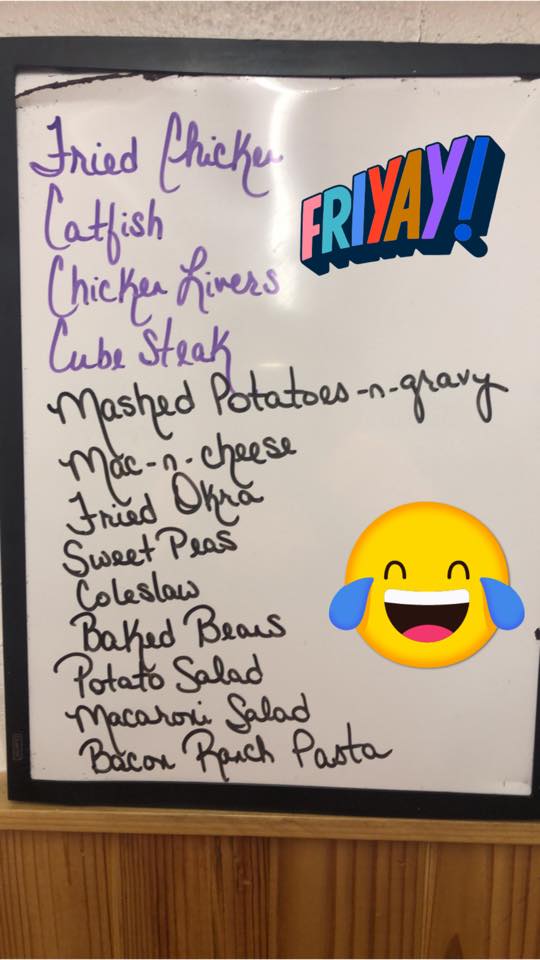 Fried Chicken
FRIYAY!
Catfish
Chicken Livers
Cube Steak
Mashed Potatoes-n-gravy
Mac-n-cheese
Fried Okra
Sweet Peas
Coleslaw
Baked Beans
Potato Salad
Macaroni Salad
Bacon Ranch Pasta